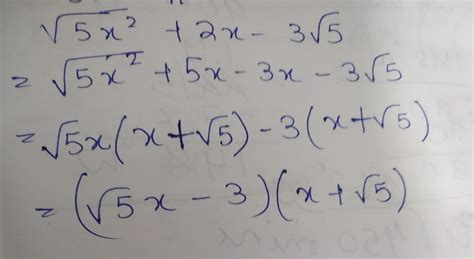 √5x² + 2x - 3√5
= √5x² + 5x - 3x - 3√5
= √5x(x+√5) - 3(x+√5)
= (√5x - 3)(x + √5)